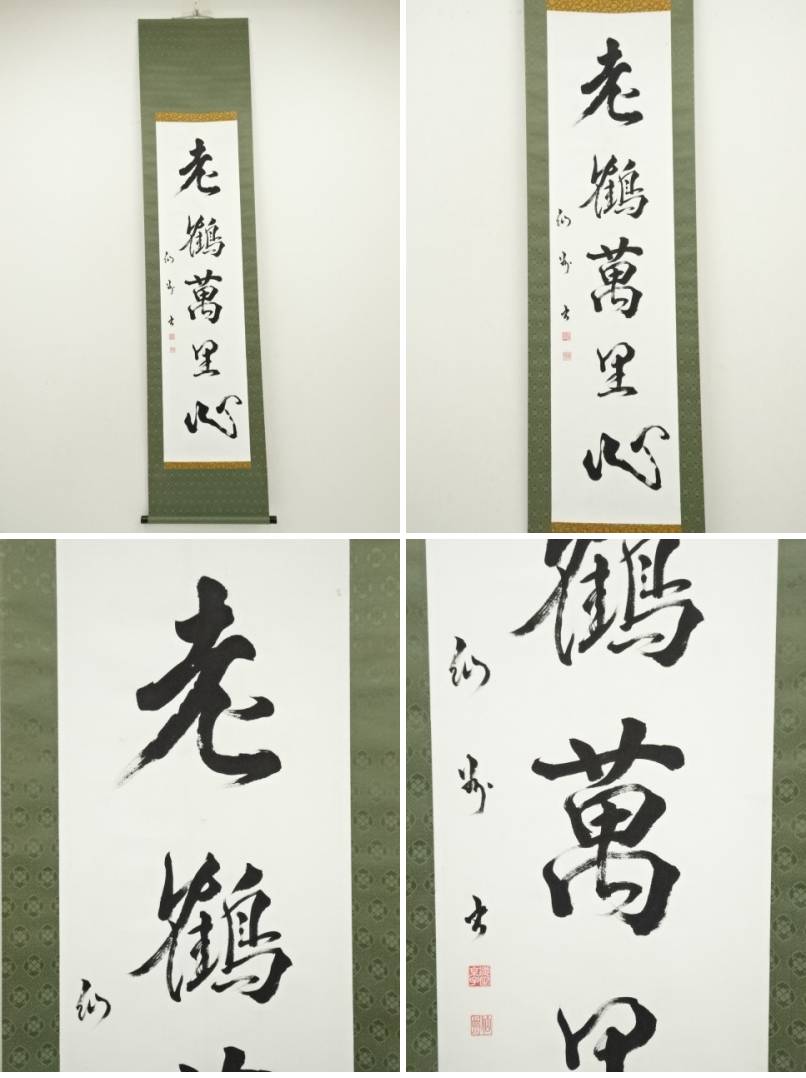 老鶴萬里心
老鶴萬里心
老鶴
鶴萬里
書